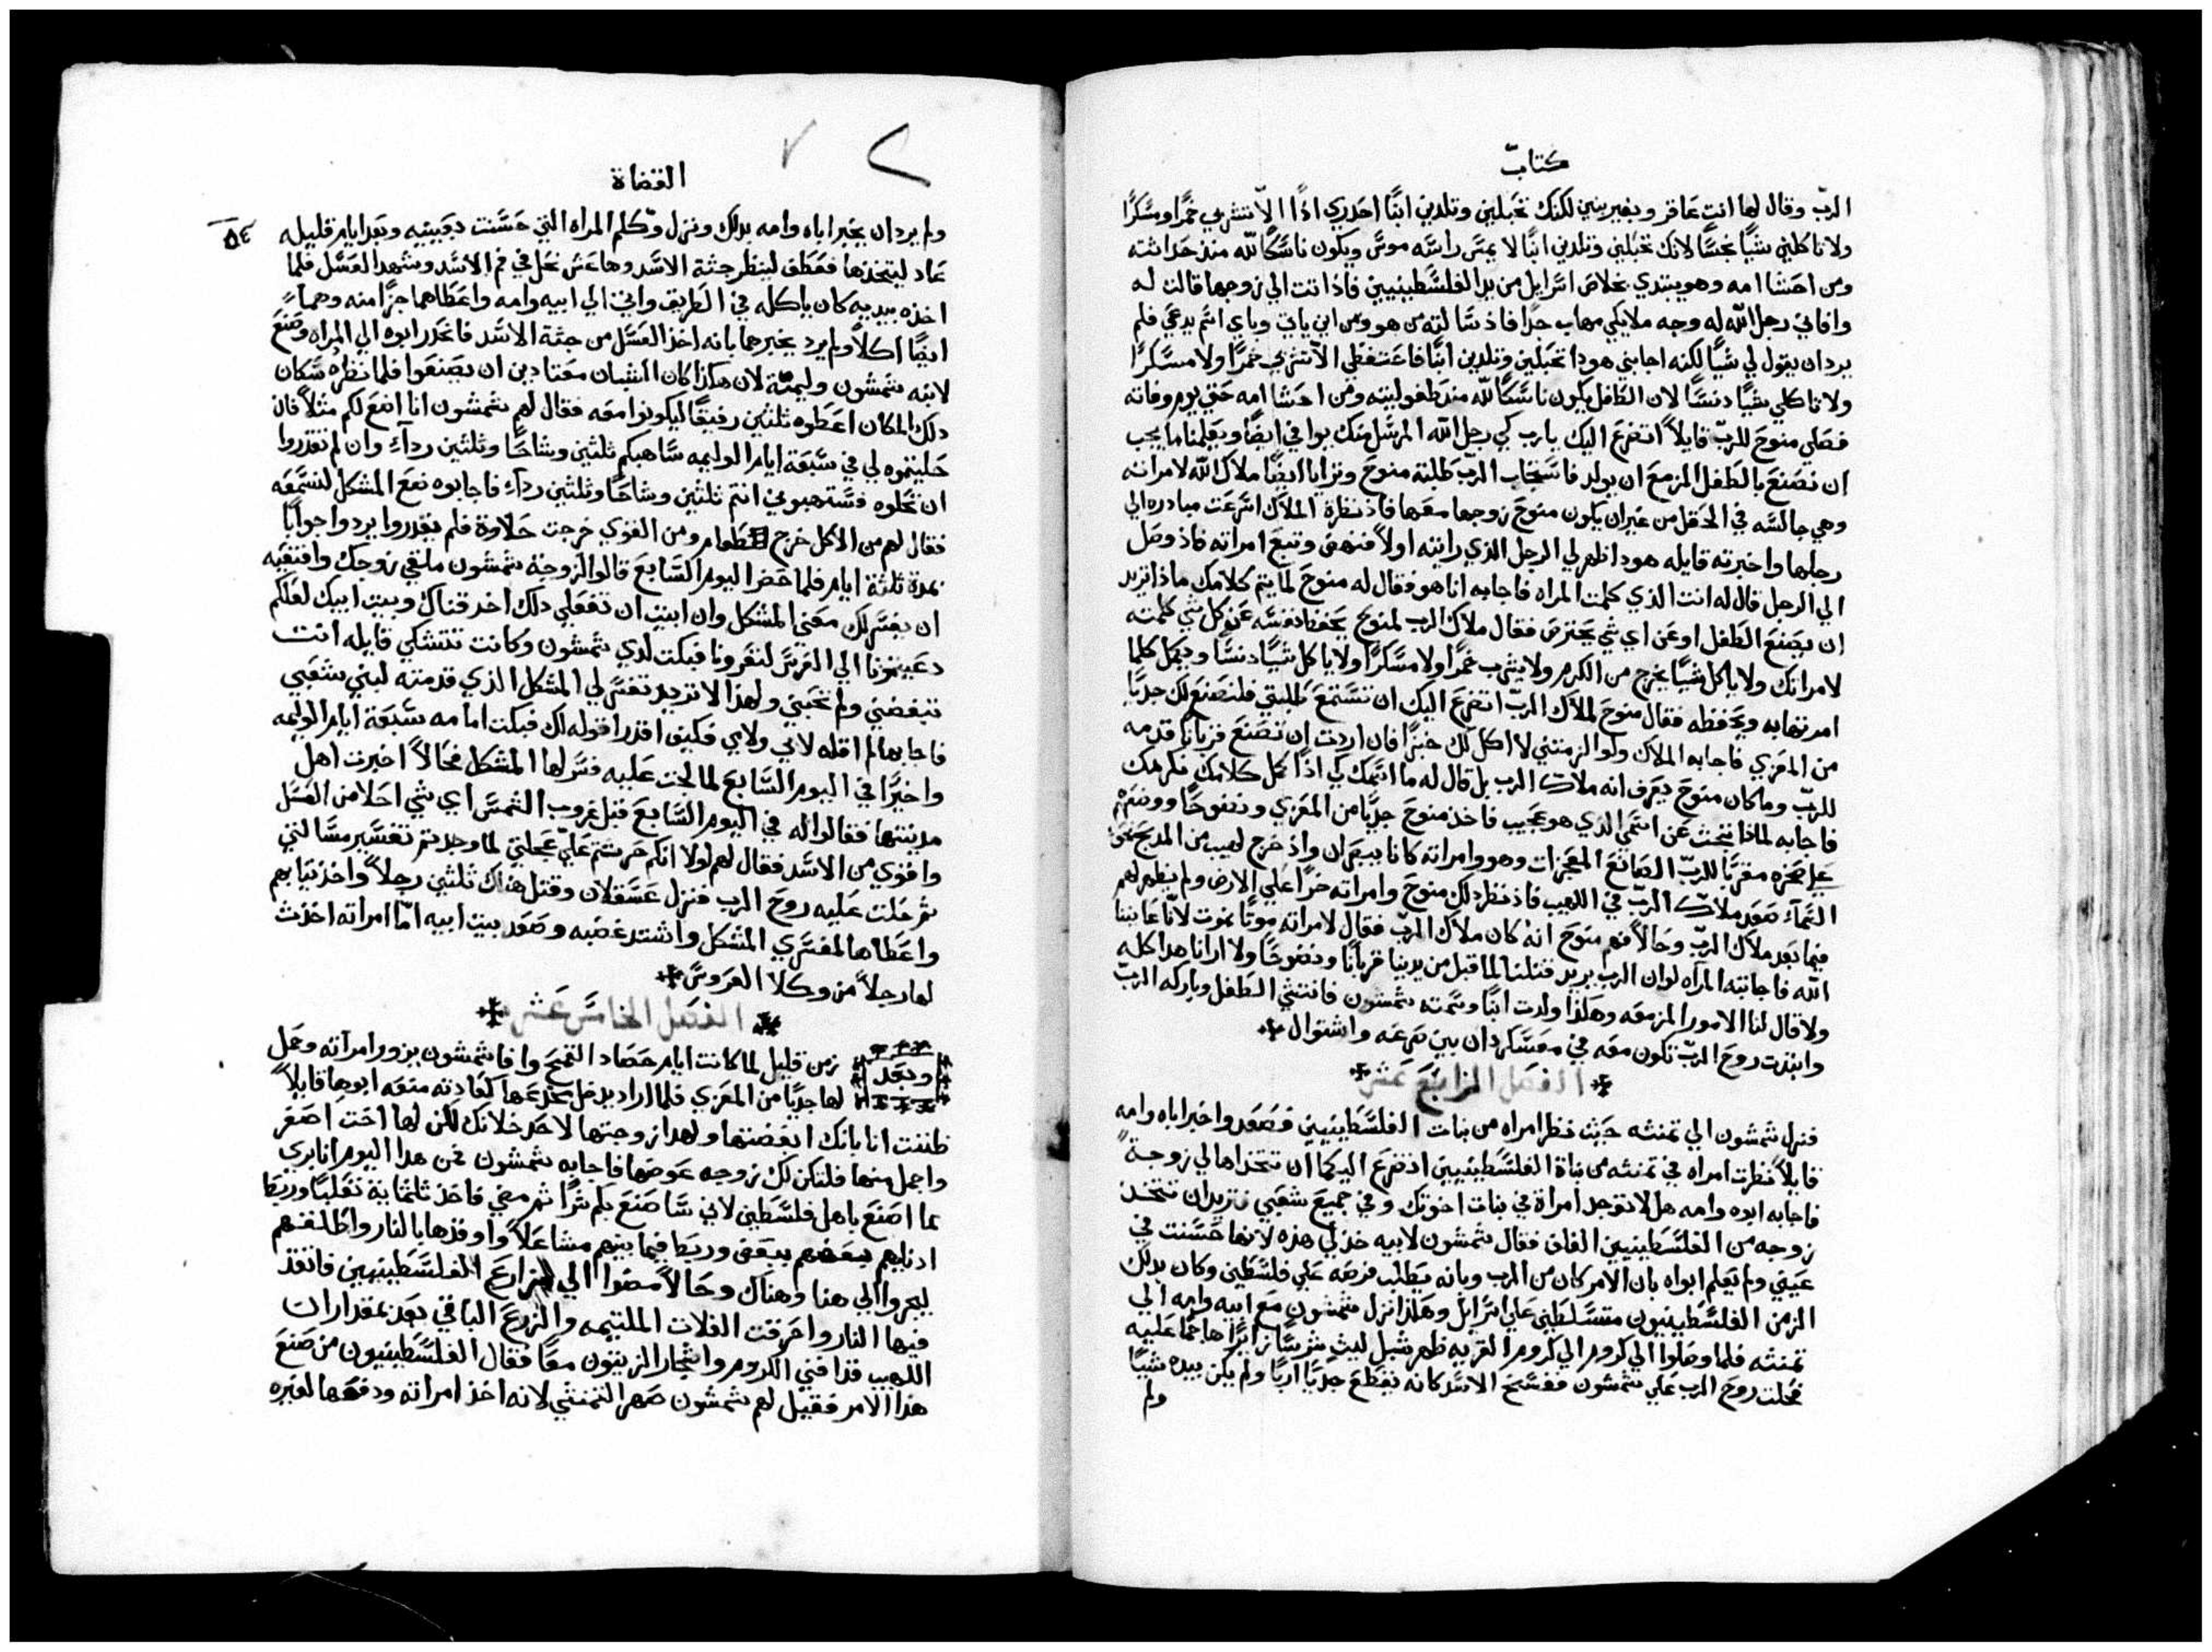 كتاب
الربّ وقال لها انتِ عاقر وبغير بنين لكنك تحبلين وتلدين ابنًا احذري اذًا الّا تشربي خمرًا ومسكرًا
ولا تاكلي شيًا نجسًا لانك تحبلين وتلدين ابنًا لا يمسّ راسه موسٌ ويكون ناسكًا للّه منذ حداثته
ومن احشا امه وهو يبتدي بخلاص اسرايل من يد الفلسطينيين فاذ اتت الي زوجها قالت له
وافاني رجل اللّه له وجه ملايكي مهاب جدًا فاذ سالته من هو ومن اين ياتي وباي اسم يدعي فلم
يرد ان يقول لي شيًا لكنه اجابني هوذا تحبلين وتلدين ابنًا فاعتفظي الّا تشربي خمرًا ولا مسكرًا
ولا تاكلي شيًا دنسًا لان الطفل يكون ناسكًا للّه منذ طفوليته ومن احشا امه حتي يوم وفاته
فصلي منوح للربّ قايلًا اتضرع اليك يارب كي رجل اللّه المرسل منك يوافي ايضًا ويعلمنا ما يجب
ان نصنع بالطفل المزمع ان يولد فاستجاب الربّ طلبة منوح وترايا ايضًا ملاك اللّه لامراته
وهي جالسه في الحقل من غير ان يكون منوح زوجها معها فاذ نظرة الملاك اسرعت مبادره الي
رجلها واخبرته قايله هوذا ظهر لي الرجل الذي رايته اولًا فنهض وتبع امراته فاذ وصل
الي الرجل قال له انت الذي كلمت المراه فاجابه انا هو فقال له منوح لما يتم كلامك ماذا تريد
ان يصنع الطفل او عن اي شي يحترص فقال ملاك الرب لمنوح يحفظ نفسه عن كل شي كلمته
لامراتك ولا ياكل شيًا يخرج من الكرم ولا يشرب خمرًا ولا مسكرًا ولا ياكل شيًا دنسًا ويعمل كلما
امرتها به ويحفظه فقال منوح لملاك الربّ اتضرع اليك ان تستمع طلبتي فلنصنع لك جديًا
من المعزي فاجابه الملاك ولو الزمتني لا اكل لك خبزًا فان اردت ان تصنع قربانًا قدمه
للربّ وما كان منوح يعرف انه ملاك الرب بل قال له ما اسمك كي اذا كمل كلامك نكرمك
فاجابه لماذا تبحث عن اسمي الذي هو عجيب فاخذ منوح جديًا من المعزي ونضوحًا ووضعهم
علي صخره مقربًا للربّ الصانع المعجزات وهو وامراته كانا يبصران واذ خرج لهيب من المدبح نحو
السمآء صعد ملاك الربّ في اللهيب فاذ نظر ذلك منوح وامراته خرّا علي الارض ولم يظهر لهم
فيما بعد ملاك الربّ وحالًا فهم منوح انه كان ملاك الربّ فقال لامراته موتًا نموت لانّا عاينا
اللّه فاجابته المراه لو ان الرب يريد قتلنا لما قبل من يدينا قربانًا ونضوحًا ولا ارانا هدا كله
ولا قال لنا الامور المزمعه وهكذا ولدت ابنًا وسمته شمشون فانتشي الطفل وباركه الربّ
وابتدت روح الربّ تكون معه في معسكر دان بين صرعه واشتوال
الفصل الرابع عشر
فنزل شمشون الي تمنثه حيث نظر امراه من بنات الفلسطينيين فصعد واخبر اباه وامه
قايلًا نظرت امراه في تمنثه من بناة الفلسطينيين اذ نضرع اليكما ان تتخداها لي زوجةً
فاجابه ابوه وامه هل لا توجد امراة في بنات اخوتك وفي جميع شعبي تريد ان تتخد
زوجه من الفلسطينيين الغلف فقال شمشون لابيه خذ لي هذه لانها حسنت في
عيني ولم يعلم ابواه بان الامر كان من الرب وبانه يطلب فرصه علي فلسطين وكان بدلك
الزمن الفلسطينيون متسلطين علي اسرايل وهكذا نزل شمشون مع ابيه وامه الي
تمنثه فلما وصلوا الي كروم الي كروم القريه ظهر شبل ليث شرسًا زايرًا هاجمًا عليه
فحلت روح الرب علي شمشون ففسخ الاسد كانه يقطع جديًا اربًا ولم يكن بيده شيًا
ولم
القضاة
٥٤
ولم يرد ان يخبر اباه وامه بدلك ونزل وكلم المراه التي حسنت بعينيه وبعد ايام قليله
عاد ليتخذها فعطف لينظر جثة الاسد وهاعش نحل في فم الاسد وشهد العسل فلما
اخذه بيديه كان ياكله في الطريق واتي الي ابيه وامه واعطاهما جزًا منه وهما
ايضًا اكلا ولم يرد يخبرهما بانه اخذ العسل من جثة الاسد فانحدر ابوه الي المراه وصنع
لابنه شمشون وليمة لان هكذا كان الشبان معتادين ان يصنعوا فلما نظره سكان
دلك المكان اعطوه ثلثين رفيقًا ليكونوا معه فقال لهم شمشون انا اضع لكم مثلًا فان
حليتموه لي في سبعة ايام الوليمه ساهبكم ثلثين وشاحًا وثلثين ردآء وان لم تقدروا
ان تحلوه فستهبوني انتم ثلثين وشاحًا وثلثين ردآء فاجابوه نعم المشكل لنسمعه
فقال لهم من الاكل خرج طعام ومن القوي خرجت حلاوة فلم يقدروا يردوا جوابًا
بمدة ثلثة ايام فلما حضر اليوم السابع قالوا لزوجة شمشون ملقي زوجك واقنعيه
ان يفسر لك معني المشكل وان ابيت ان تفعلي دلك احرقناك وبيت ابيك لعلكم
دعيتمونا الي العرس لتعرونا فبكت لدي شمشون وكانت تتشكي قايله انت
تبغضني ولم تحبني ولهذا لا تريد تفسر لي المشكل الذي قدمته لبني شعبي
فاجابها لم اقله لابي ولامي فكيف اقدر اقوله لك فبكت امامه سبعة ايام الوليمه
واخيرًا في اليوم السابع لما لجت عليه فسر لها المشكل فحالًا اخبرت اهل
مدينتها فقالوا له في اليوم السابع قبل غروب الشمس اي شي احلا من العسل
واقوي من الاسد فقال لهم لولا انكم حرثتم علي عجلتي لما وجدتم تفسير مسالتي
ثم حلت عليه روح الرب فنزل عسقلان وقتل هناك ثلثين رجلًا واخذ ثيابهم
واعطاها لمفسري المشكل واشتد غضبه وصعد بيت ابيه امّا امراته اخذت
لها رجلًا من وكلا العروس
الفصل الخامس عشر
وبعد زمن قليل لما كانت ايام حصاد القمح وافا شمشون يزور امرآته وحمل
لها جديًا من المعزي فلما اراد يدخل مخدعها كعادته منعه ابوها قايلًا
ظننت انا بانك ابغضتها ولهدا زوجتها لاحد خلانك لكن لها اخت اصغر
واجمل منها فلتكن لك زوجه عوضها فاجابه شمشون نحن هدا اليوم انا بري
مما اصنع باهل فلسطين لاني ساصنع بكم شرًا ثم مضي فاخذ ثلثماية تعلبًا وربط
ادنابهم بعضهم ببعض وربط فيما بينهم مشاعلًا واوقدها بالنار واطلقهم
ليجروا الي هنا وهناك وحالًا مضوا الي مزارع الفلسطينيين فاتقد
فيها النار واحرقت الغلات الملتيمه والزرع الباقي بعد بمقدار ان
اللهيب قد افني الكروم واشجار الزيتون معًا فقال الفلسطينيون من صنع
هذا الامر فقيل لهم شمشون صهر التمنثي لانه اخذ امراته ودفعها لغيره